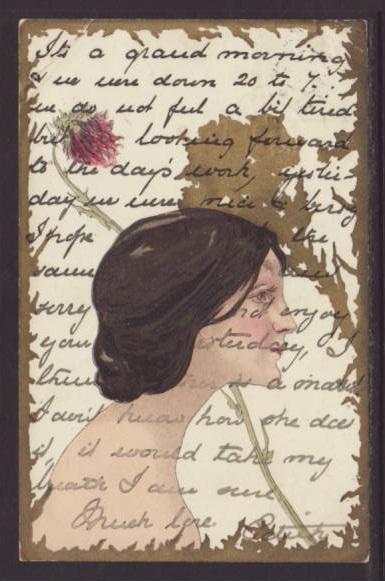 It's a grand morning
& we were down 20 to 7.
we do not feel a bit tired
but looking forward
to the day's work, yester-
day we were nice & busy
I hope the
same and
sorry enjoy
your yesterday, I
think is a
I don't know how she does
it it would take my
breath I am sure
Much love